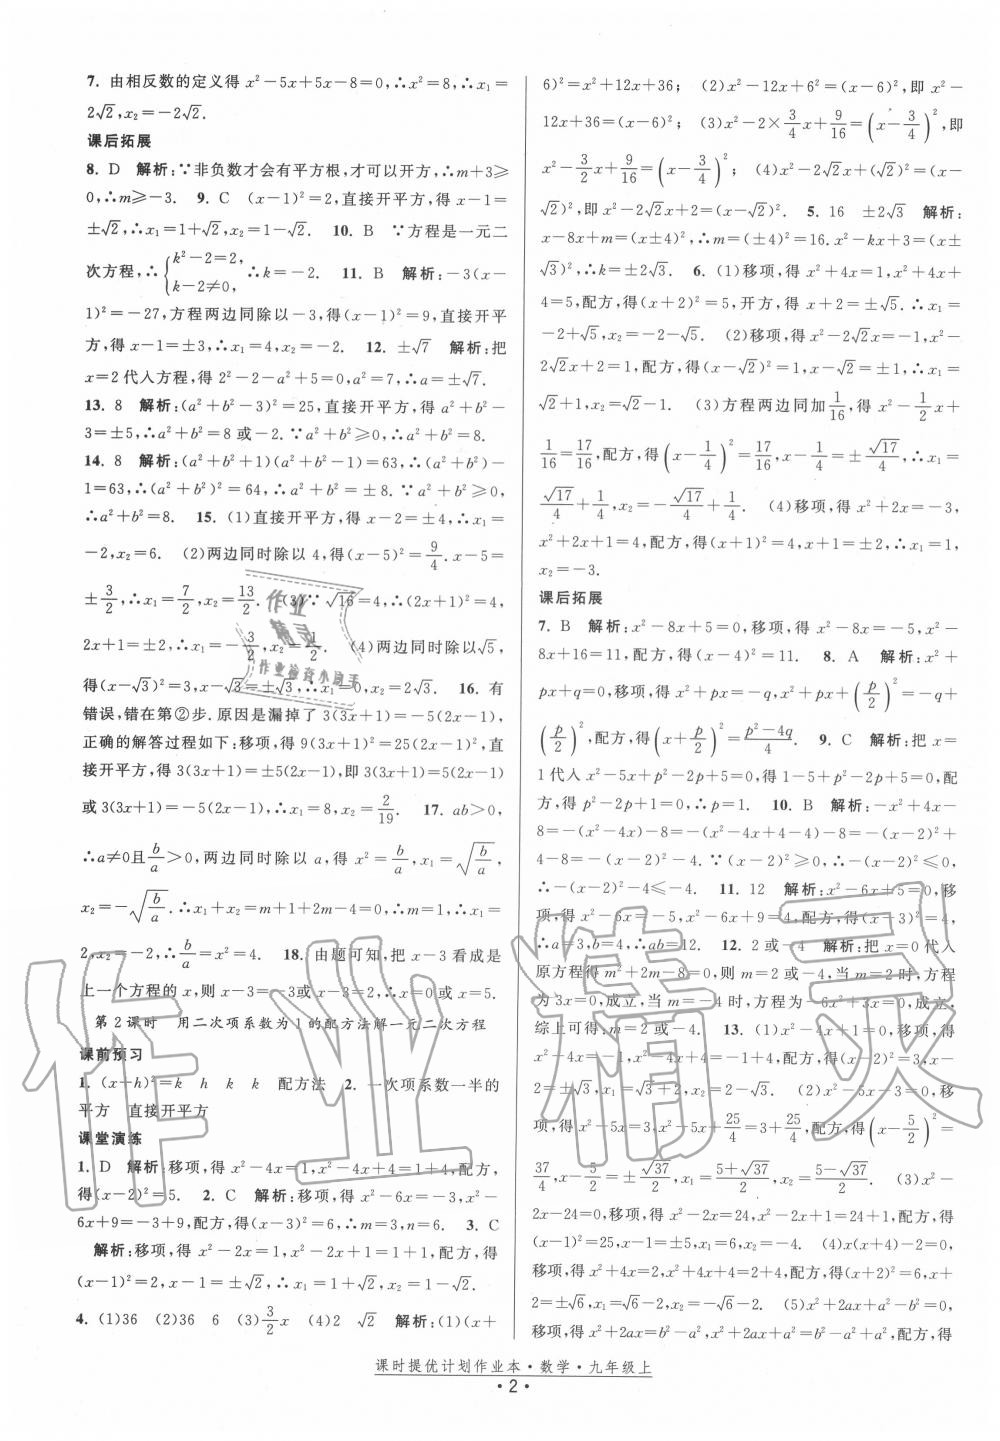 7. 由相反数的定义得 x²－5x＋5x－8＝0,∴x²＝8,∴x₁＝
2√2,x₂＝－2√2.
课后拓展
8. D 解析:∵非负数才会有平方根,才可以开方,∴m＋3≥
0,∴m≥－3. 9. C (x－1)²＝2,直接开平方,得 x－1＝
±√2,∴x₁＝1＋√2,x₂＝1－√2. 10. B ∵方程是一元二
次方程,∴{k²－2＝2, k－2≠0, ∴k＝－2. 11. B 解析:－3(x－
1)²＝－27,方程两边同除以－3,得(x－1)²＝9,直接开平
方,得 x－1＝±3,∴x₁＝4,x₂＝－2. 12. ±√7 解析:把
x＝2代入方程,得 2²－2－a²＋5＝0,a²＝7,∴a＝±√7.
13. 8 解析:(a²＋b²－3)²＝25,直接开平方,得 a²＋b²－
3＝±5,∴a²＋b²＝8或－2.∵a²＋b²≥0,∴a²＋b²＝8.
14. 8 解析:(a²＋b²＋1)(a²＋b²－1)＝63,∴(a²＋b²)²－
1＝63,∴(a²＋b²)²＝64,∴a²＋b²＝±8.∵a²＋b²≥0,
∴a²＋b²＝8. 15. (1)直接开平方,得 x－2＝±4,∴x₁＝
－2,x₂＝6. (2)两边同时除以 4,得(x－5)²＝9/4.x－5＝
±3/2,∴x₁＝7/2,x₂＝13/2. (3)∵√16＝4,∴(2x＋1)²＝4,
2x＋1＝±2,∴x₁＝－3/2,x₂＝1/2. (4)两边同时除以√5,
得(x－√3)²＝3,x－√3＝±√3,∴x₁＝0,x₂＝2√3. 16. 有
错误,错在第②步.原因是漏掉了 3(3x＋1)＝－5(2x－1),
正确的解答过程如下:移项,得 9(3x＋1)²＝25(2x－1)²,直
接开平方,得 3(3x＋1)＝±5(2x－1),即 3(3x＋1)＝5(2x－1)
或 3(3x＋1)＝－5(2x－1),∴x₁＝8,x₂＝2/19. 17. ab＞0,
∴a≠0且b/a＞0,两边同时除以 a,得 x²＝b/a,x₁＝√(b/a),
x₂＝－√(b/a).∴x₁＋x₂＝m＋1＋2m－4＝0,∴m＝1,∴x₁＝
2,x₂＝－2,∴b/a＝x²＝4. 18. 由题可知,把 x－3看成是
上一个方程的 x,则 x－3＝－3或 x－3＝2,∴x＝0或 x＝5.
第2课时 用二次项系数为1的配方法解一元二次方程
课前预习
1. (x－h)²＝k h k k 配方法 2. 一次项系数一半的
平方 直接开平方
课堂演练
1. D 解析:移项,得 x²－4x＝1,x²－4x＋4＝1＋4,配方,
得(x－2)²＝5. 2. C 解析:移项,得 x²－6x＝－3,x²－
6x＋9＝－3＋9,配方,得(x－3)²＝6,∴m＝3,n＝6. 3. C
解析:移项,得 x²－2x＝1,x²－2x＋1＝1＋1,配方,得
(x－1)²＝2,x－1＝±√2,∴x₁＝1＋√2,x₂＝1－√2.
4. (1)36 (2)36 6 (3)3/2x (4)2 √2 解析:(1)(x＋
6)²＝x²＋12x＋36; (2)x²－12x＋6²＝(x－6)²,即 x²－
12x＋36＝(x－6)²; (3)x²－2×3/4x＋9/16＝(x－3/4)²,即
x²－3/2x＋9/16＝(x－3/4)²; (4)x²－2√2x＋(√2)²＝(x－
√2)²,即 x²－2√2x＋2＝(x－√2)². 5. 16 ±2√3 解析:
x－8x＋m＝(x±4)²,∴m＝(±4)²＝16.x²－kx＋3＝(x±
√3)²,∴k＝±2√3. 6. (1)移项,得 x²＋4x＝1,x²＋4x＋
4＝5,配方,得(x＋2)²＝5,开方,得 x＋2＝±√5.∴x₁＝
－2＋√5,x₂＝－2－√5. (2)移项,得 x²－2√2x＝－1,x²－
2√2x＋2＝1,配方,得(x－√2)²＝1,x－√2＝±1,∴x₁＝
√2＋1,x₂＝√2－1. (3)方程两边同加1/16,得 x²－1/2x＋
1/16＝17/16,配方,得(x－1/4)²＝17/16,x－1/4＝±√17/4,∴x₁＝
√17/4＋1/4,x₂＝－√17/4＋1/4. (4)移项,得 x²＋2x＝－3,
x²＋2x＋1＝4,配方,得(x＋1)²＝4,x＋1＝±2,∴x₁＝1,
x₂＝－3.
课后拓展
7. B 解析:移项,得 x²－8x＋5＝0,移项,得 x²－8x＝－5,x²－
8x＋16＝11,配方,得(x－4)²＝11. 8. A 解析:x²＋
px＋q＝0,移项,得 x²＋px＝－q,x²＋px＋(p/2)²＝－q＋
(p/2)²,配方,得(x＋p/2)²＝(p²－4q)/4. 9. C 解析:把 x＝
1代入 x²－5x＋p²－2p＋5＝0,得 1－5＋p²－2p＋5＝0,配
方,得 p²－2p＋1＝0,∴p＝1. 10. B 解析:－x²＋4x－
8＝－(x²－4x)－8＝－(x²－4x＋4－4)－8＝－(x－2)²＋
4－8＝－(x－2)²－4.∵(x－2)²≥0,∴－(x－2)²≤0,
∴－(x－2)²－4≤－4. 11. 12 解析:x²－6x＋5＝0,移
项,得 x²－6x＝－5,x²－6x＋9＝4,配方,得(x－3)²＝4,
∴a＝3,b＝4,∴ab＝12. 12. 2或－4 解析:把 x＝0代入
原方程,得 m²＋2m－8＝0,m＝2或－4,当 m＝2时,方程
为 x²＝0,成立,当 m＝－4时,方程为－6x²＋3x＝0,成立.
综上可得:m＝2或－4. 13. (1)x²－4x＋1＝0,移项,得
x²－4x＝－1,x²－4x＋4＝－1＋4,配方,得(x－2)²＝3,x－
2＝±√3,x₁＝√3＋2,x₂＝－√3＋2. (2)x²－5x－3＝0,移
项,得 x²－5x＝3,x²－5x＋25/4＝3＋25/4,配方,得(x－5/2)²＝
37/4,x－5/2＝±√37/2,x₁＝(5＋√37)/2,x₂＝(5－√37)/2. (3)x²－
2x－24＝0,移项,得 x²－2x＝24,x²－2x＋1＝24＋1,配方,
得(x－1)²＝25,x－1＝±5,x₁＝6,x₂＝－4. (4)x(x＋4)－2＝0,
移项,得 x²＋4x＝2,x²＋4x＋4＝2＋4,配方,得(x＋2)²＝6,x＋
2＝±√6,x₁＝√6－2,x₂＝－√6－2. (5)x²＋2ax＋a²－b²＝0,
移项,得 x²＋2ax＝b²－a²,x²＋2ax＋a²＝b²－a²＋a²,得
课时提优计划作业本·数学·九年级上
·2·
作业
精灵
作业检查小助手
作业精灵